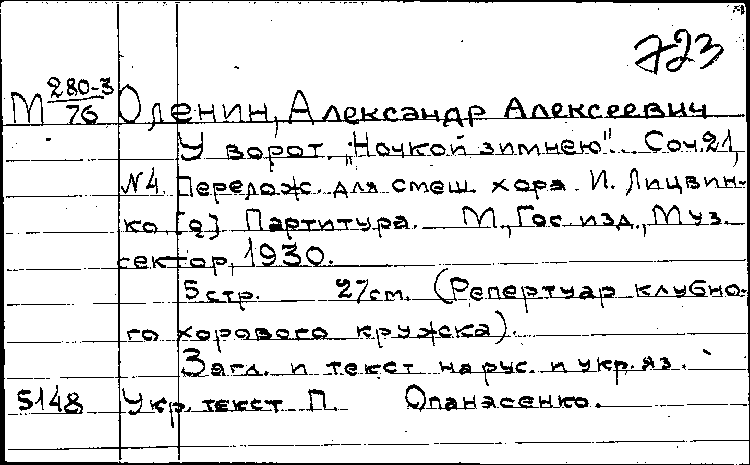 723
М 280-3/76 Оленин, Александр Алексеевич
У ворот. „Ночкой зимнею". Соч. 21,
№4. Перелож. для смеш. хора И. Лицвин-
ко. [g] Партитура. М., Гос. изд., Муз.
сектор, 1930.
5 стр. 27 ст. (Репертуар клубно-
го хорового кружка).
Загл. и текст на рус. и укр. яз.
5148 Укр. текст П. Опанасенко.